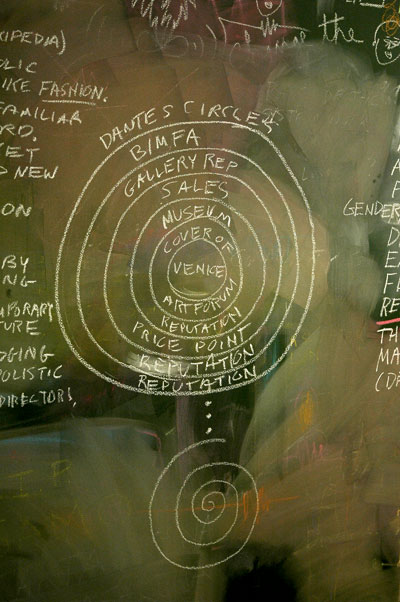 KIPEDIA)
OLIC
IKE FASHION.
FAMILIAR
RD.
ET
D NEW
ON
BY
NG
PORARY
TURE
DGING
POLISTIC
DIRECTORS,
DANTES CIRCLES
BIMFA
GALLERY REP
SALES
MUSEUM
COVER OF
VENICE
ARTFORUM
REPUTATION
PRICE POINT
REPUTATION
REPUTATION
the
GENDER
D
E
F
RE
TH
MA